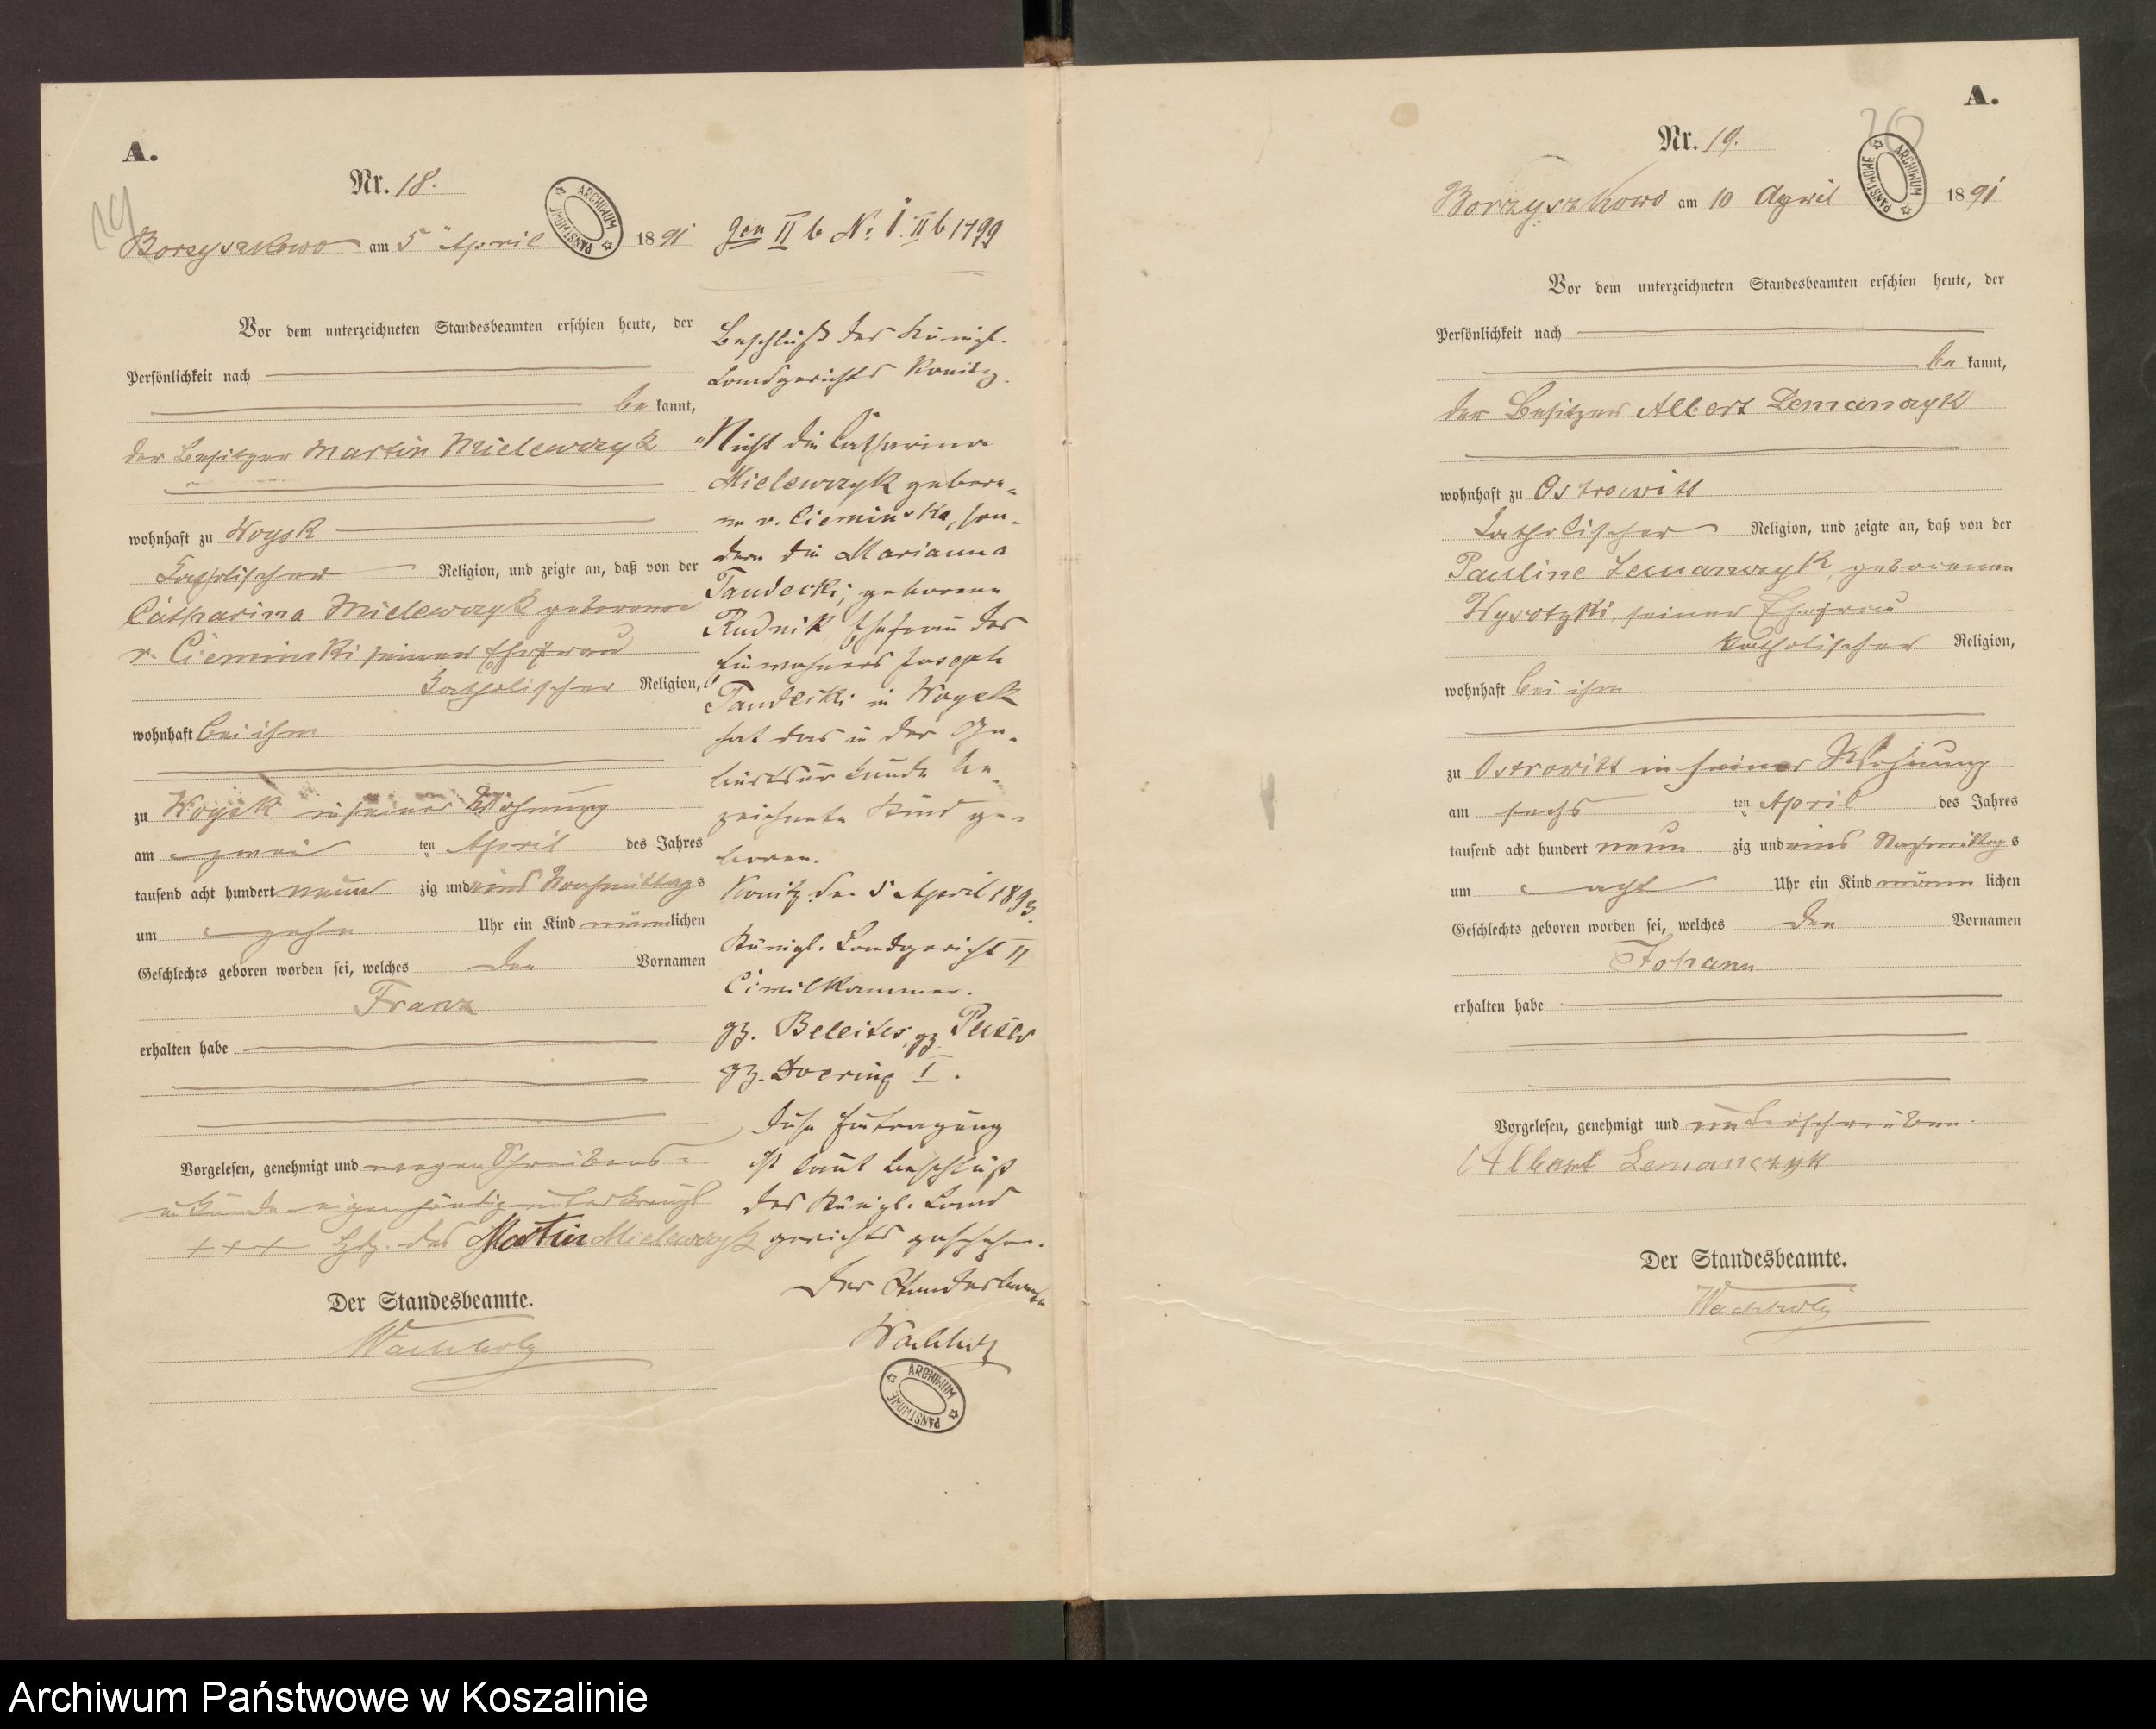 A.
Nr. 18.
19
Borzyszkowo am 5 April 1891
Vor dem unterzeichneten Standesbeamten erschien heute, der
Persönlichkeit nach
be kannt,
der Besitzer Martin Mielewczyk
wohnhaft zu Woysk
katholischer Religion, und zeigte an, daß von der
Catharina Mielewczyk geborenen
v. Cieminski seiner Ehefrau
katholischer Religion,
wohnhaft bei ihm
zu Woysk in seiner Wohnung
am zwei ten April des Jahres
tausend acht hundert neun zig und eins Nachmittags
um zehn Uhr ein Kind männlichen
Geschlechts geboren worden sei, welches den Vornamen
Franz
erhalten habe
Vorgelesen, genehmigt und wegen Schreibens-
unkunde eigenhändig unterkreuzt
+++ Hdz. des Martin Mielewczyk
Der Standesbeamte.
Wachholz
Gen II b No. 1. II b 1499
Beschluß des Königl.
Landgerichts Konitz.
"Nicht die Catharina
Mielewczyk gebore-
ne v. Cieminska, son-
dern die Marianna
Tandecki, geborene
Rudnik, Ehefrau des
Einwohners Joseph
Tandecki in Woysk
hat das in der Ge-
burtsurkunde be-
zeichnete Kind ge-
boren.
Konitz den 5 April 1893.
Königl. Landgericht II
Civilkammer.
gz. Beleites, gz.
gz. Doering I.
Diese Eintragung
ist laut Beschluß
des Königl. Land
gerichts geschehen.
Der Standesbeamte
Wachholz
ARCHIWUM PAŃSTWOWE
ARCHIWUM PAŃSTWOWE
A.
Nr. 19.
20
Borzyszkowo am 10 April 1891
ARCHIWUM PAŃSTWOWE
Vor dem unterzeichneten Standesbeamten erschien heute, der
Persönlichkeit nach
be kannt,
der Besitzer Albert Lemanczyk
wohnhaft zu Ostrowitt
katholischer Religion, und zeigte an, daß von der
Pauline Lemanczyk, geborenen
Wysotzki, seiner Ehefrau
katholischer Religion,
wohnhaft bei ihm
zu Ostrowitt in seiner Wohnung
am sechs ten April des Jahres
tausend acht hundert neun zig und eins Nachmittags
um acht Uhr ein Kind männlichen
Geschlechts geboren worden sei, welches den Vornamen
Johann
erhalten habe
Vorgelesen, genehmigt und unterschrieben.
Albert Lemanczyk
Der Standesbeamte.
Wachholz
Archiwum Państwowe w Koszalinie